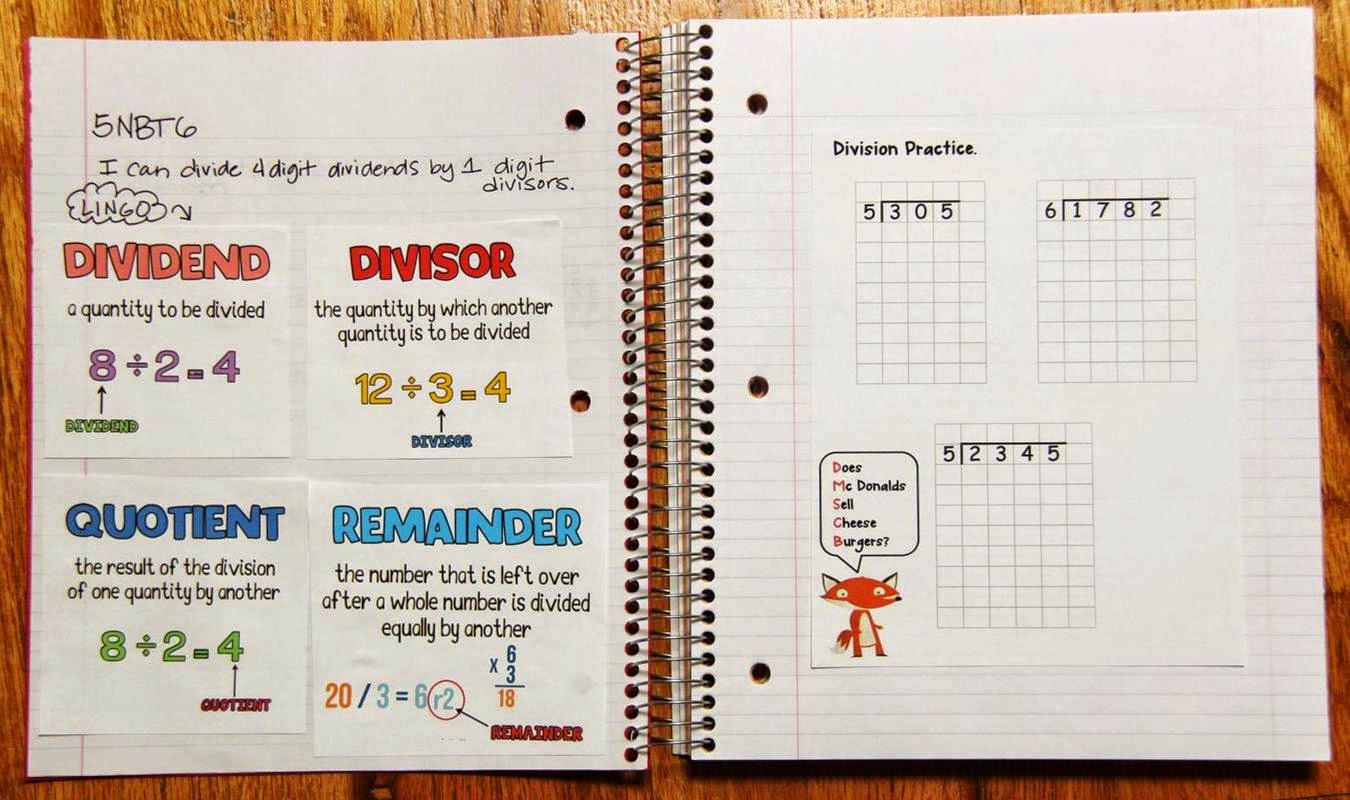 5NBT6
I can divide 4 digit dividends by 1 digit
divisors.
LINGO
DIVIDEND
a quantity to be divided
8 ÷ 2 = 4
DIVIDEND
DIVISOR
the quantity by which another
quantity is to be divided
12 ÷ 3 = 4
DIVISOR
QUOTIENT
the result of the division
of one quantity by another
8 ÷ 2 = 4
QUOTIENT
REMAINDER
the number that is left over
after a whole number is divided
equally by another
6
x 3
18
20 / 3 = 6 r2
REMAINDER
Division Practice.
5 3 0 5
6 1 7 8 2
5 2 3 4 5
Does
Mc Donalds
Sell
Cheese
Burgers?